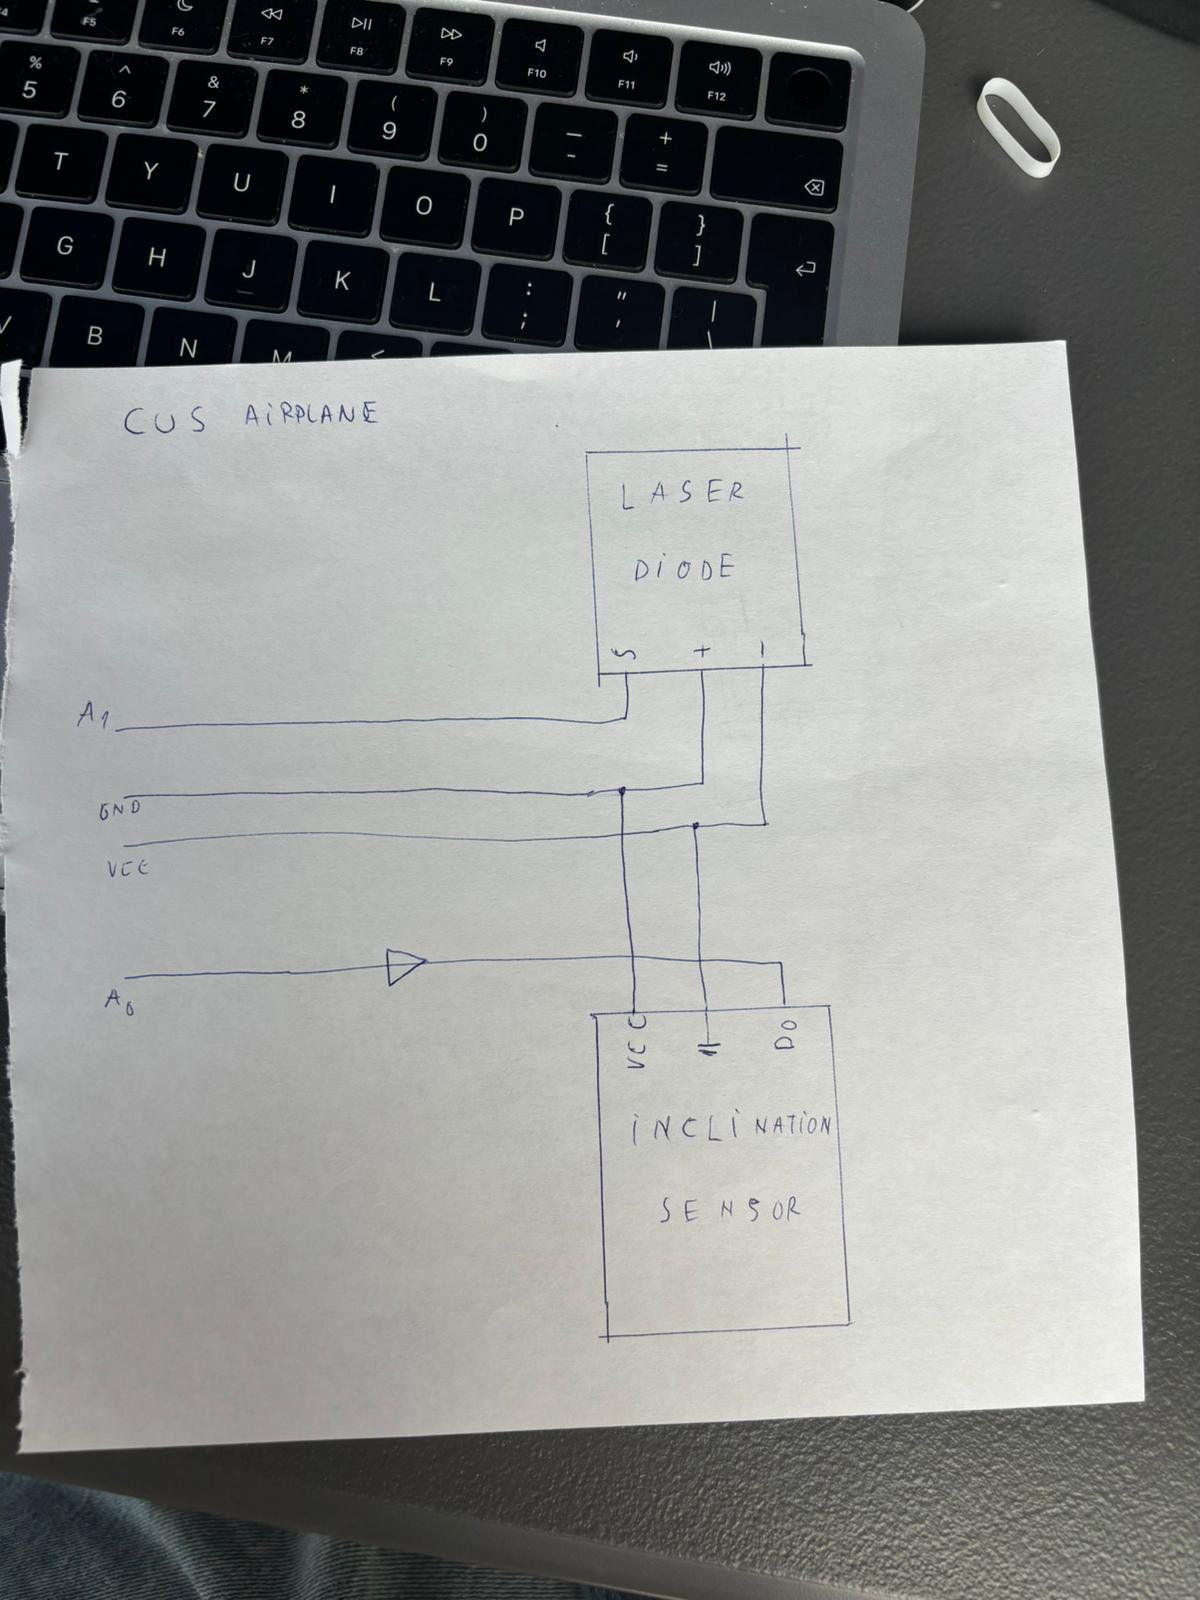 F5 F6 F7 F8 F9 F10 F11 F12
% 5 ^ 6 & 7 * 8 ( 9 ) 0 — - + =
T Y U I O P { [ } ]
G H J K L : ; " ' | \
V B N M <
CUS AiRPLANE
LASER
DiODE
S + −
A1
GND
VCC
A0
VCC D0
iNCLiNATiON
SENSOR